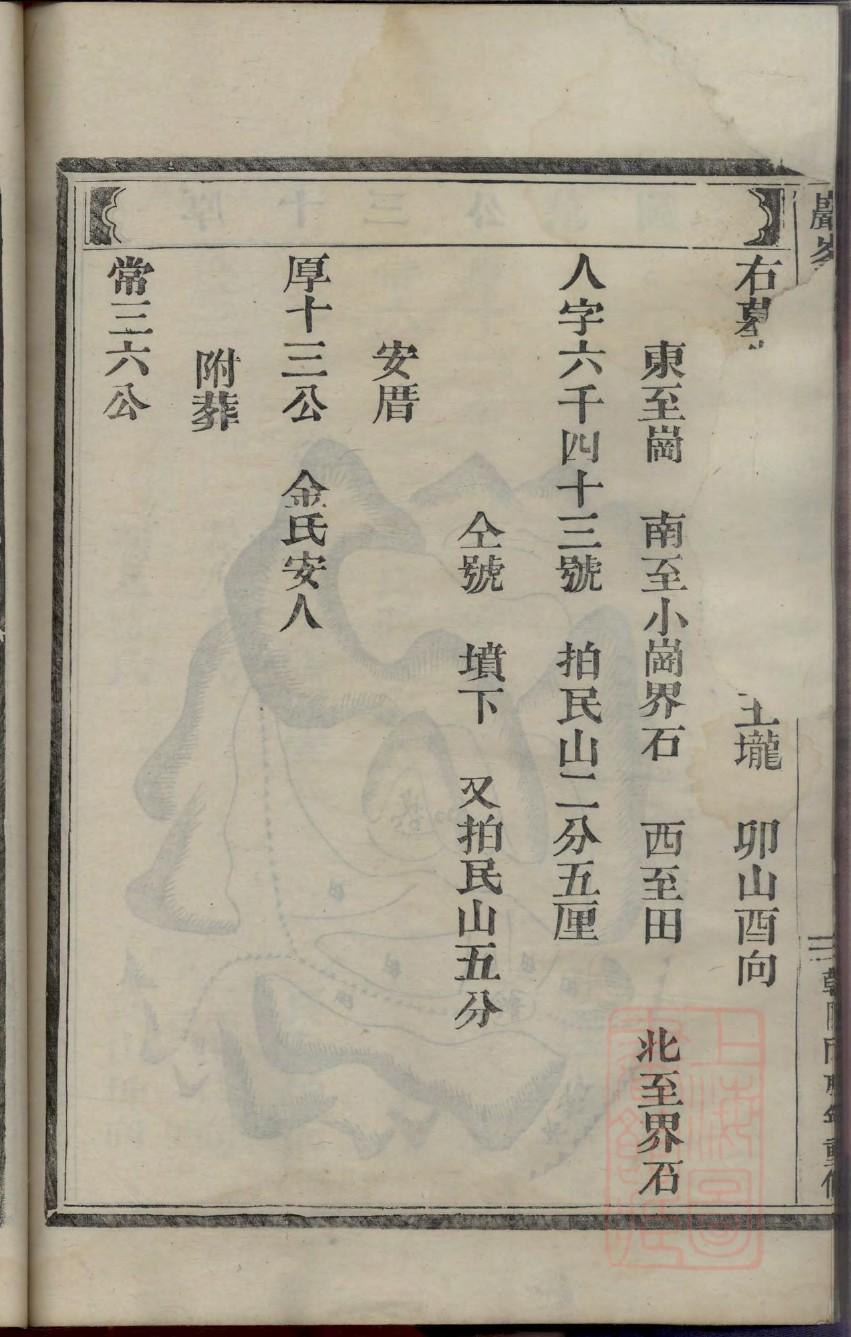 右墓
壠 卯山酉向
東至崗 南至小崗界石 西至田 北至界石
人字六千四十三號 拍民山二分五厘
仝號 墳下 又拍民山五分
安厝
厚十三公 金氏安人
附葬
常三六公